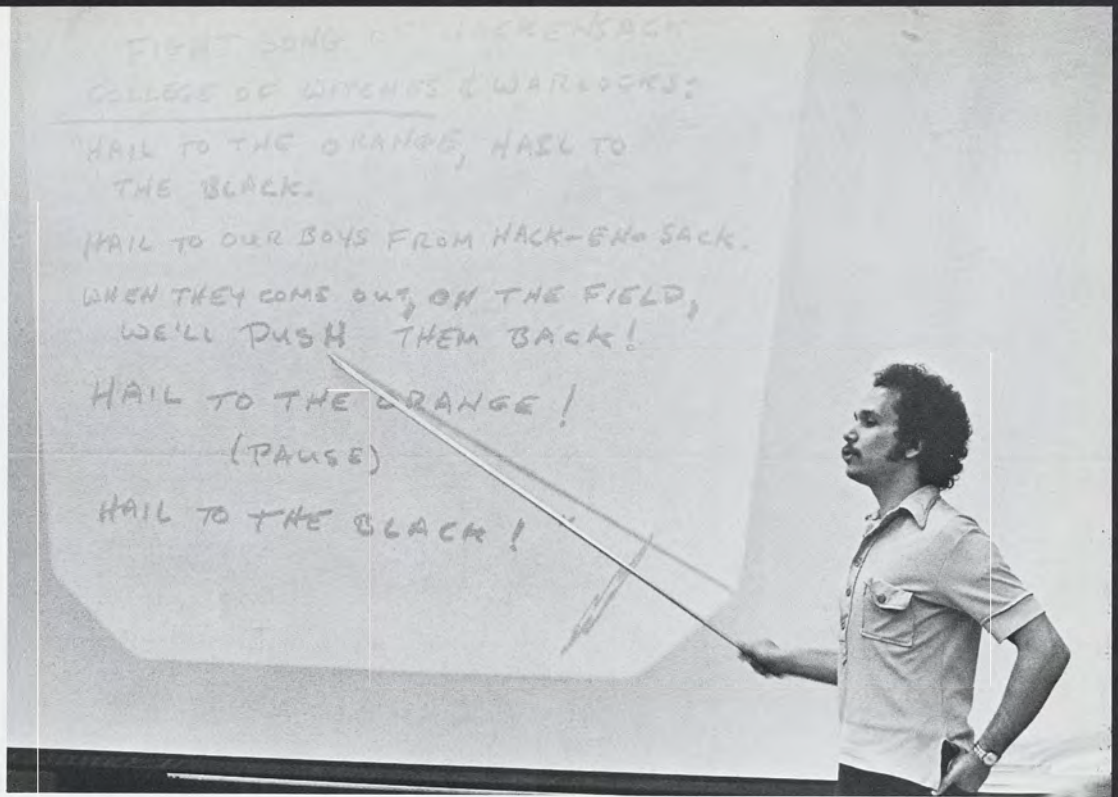 FIGHT SONG OF HACKENSACK
COLLEGE OF WITCHES & WARLOCKS:
"HAIL TO THE ORANGE, HAIL TO
THE BLACK.
HAIL TO OUR BOYS FROM HACK-EN-SACK.
WHEN THEY COME OUT, ON THE FIELD,
WE'LL PUSH THEM BACK!
HAIL TO THE ORANGE!
(PAUSE)
HAIL TO THE BLACK!"